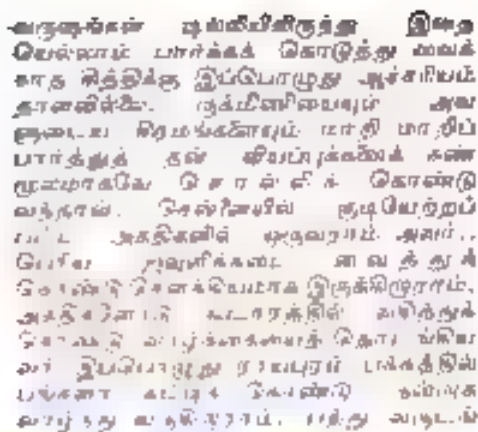 வருஷங்கள் டில்லியிலிருந்து இதை
யெல்லாம் பார்க்கக் கொடுத்து வைக்
காத சித்திக்கு இப்பொழுது ஆச்சரியம்
தாளவில்லை. ருக்மிணியையும் அவ
ளுடைய சிநேகங்களையும் மாறி மாறிப்
பார்த்துத் தன் வியப்புக்களைக் கண்
மூலமாகவே சொல்லிக் கொண்டு
வந்தாள். சென்னையில் குடியேற்றப்
பட்ட அகதிகளில் ஒருவராம் அவர்..
பெரிய ஜவுளிக்கடை வைத்துக்
கொண்டு சௌக்கியமாக இருக்கிறாராம்.
அகதிகளோடு கூடாரத்தில் வசித்துக்
கொண்டு வாழ்க்கையைத் தொடங்கிய
வர் இப்பொழுது ராயபுரம் பக்கத்தில்
பங்களா கட்டிக் கொண்டு
வாழ்ந்து வருகிறாராம். பத்து வருடம்